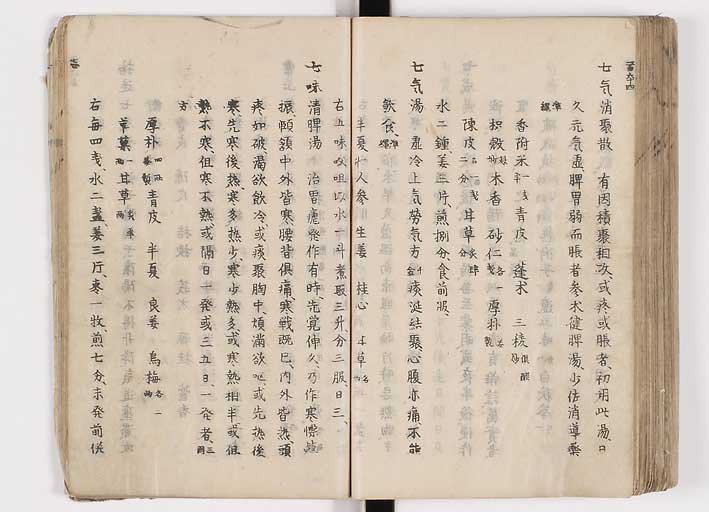 七気消聚散 有因積聚相攻或疼或脹者、初用此湯、日
久元気虚脾胃弱而脹者参术健脾湯、少佐消導藥
準縄
香附米 一戔 青皮 蓬术 三稜 俱醋炒
枳殻 木香 砂仁 各一 厚朴
陳皮 甘草
水二鐘姜三斤煎捌分食前服、
七気湯 虚冷上気勞気方 痰涎結聚心腹亦痛、不能
飲食、準縄
半夏 人参 生姜 桂心 甘草
右五味㕮咀以水斗煮取三升分三服、日三、
七味清脾湯 治胃瘧發作有時、先覚伸久、乃作寒慄鼓
振、頷中外皆寒、腰背俱痛、寒戦既已、内外皆热、頭
疼如破、渇欲飲冷、或痰聚胸中、煩滿欲吐、或先热後
寒、先寒後热、寒多热少、寒少热多、或寒热相半、或但
热不寒、但寒不热、或隔日一発、或三五日、一発者、三因
方
厚朴 四両 青皮 半夏 良姜 烏梅 各一両
草菓 一両 甘草
右毎四戔、水二盞、姜三斤、棗一枚、煎七分、未発前併